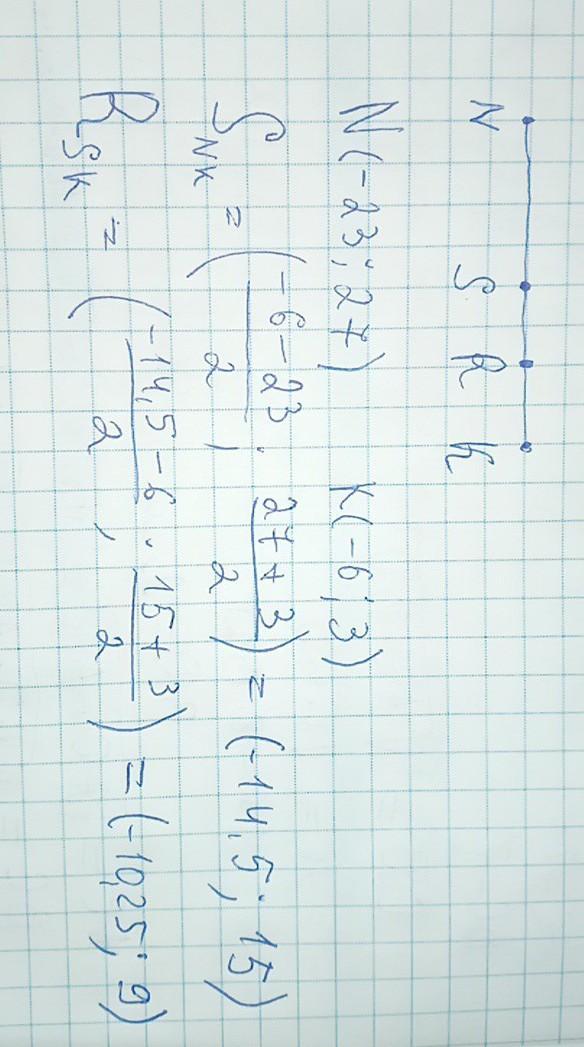 N S R K
N(-23; 27) K(-6; 3)
S_NK = (\frac{-6-23}{2}; \frac{27+3}{2}) = (-14,5; 15)
R_SK = (\frac{-14,5-6}{2}; \frac{15+3}{2}) = (-10,25; 9)